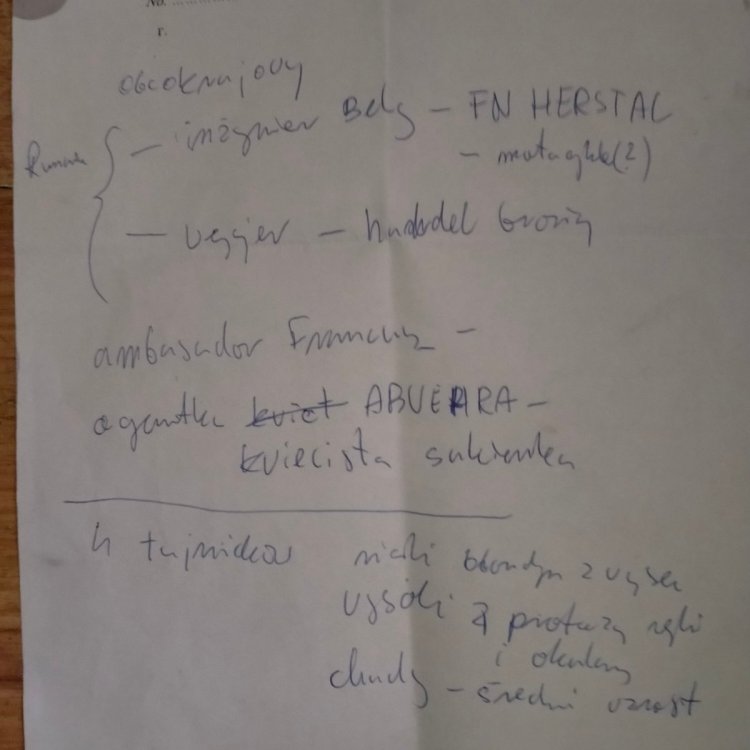 No. ..........
r.
obcokrajowy
— inżynier Belg — FN HERSTAL
— motocykle(?)
— węgier — handel bronią
ambasador Francuz —
agentka kwiat ABWEHRA —
kwiecista sukienka
4 tajników niski blondyn z wąsem
wysoki z protezą ręki
i okulary
chudy — średni wzrost